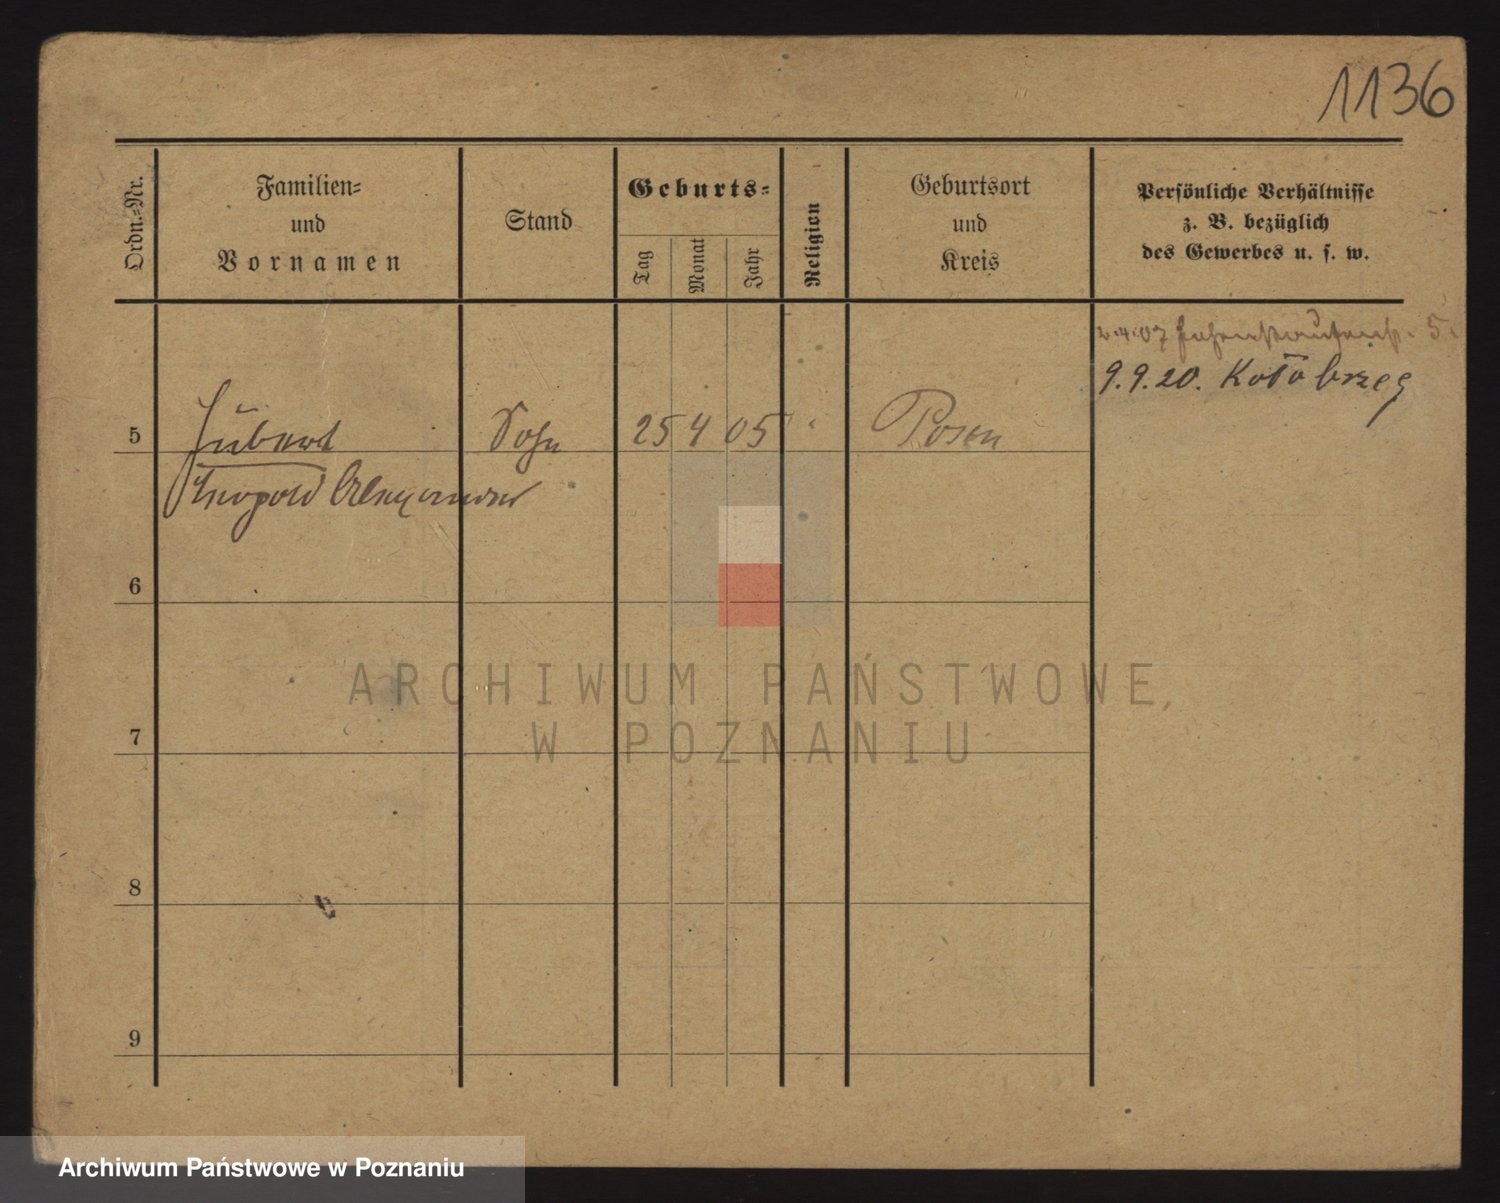 1136
Ordn.-Nr.
Familien-
und
Vornamen
Stand
Geburts-
Tag
Monat
Jahr
Religion
Geburtsort
und
Kreis
Persönliche Verhältnisse
z. B. bezüglich
des Gewerbes u. s. w.
2.4.07 5.
9.9.20. Kołobrzeg
5 Sohn 25 4 05 " Posen
Leopold Alexander
6
7
8
9
ARCHIWUM PAŃSTWOWE
W POZNANIU
Archiwum Państwowe w Poznaniu